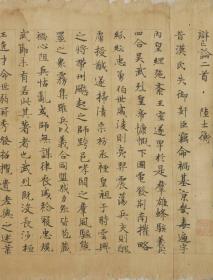 辯亡論二首 陸士衡
昔漢氏失御姧臣竊命禍基京畿毒遍宇
內皇綱弛紊王室遂卑於是羣雄蜂駭義兵
四合吳武烈皇帝慷慨下國電發荊南權略
紛紜忠勇伯世威稜則夷羿震蕩兵交則醜
虜授馘遂掃清宗祊蒸禋皇祖于時雲興
之將帶州飈起之師跨邑哮闞之羣風驅熊
羆之衆霧集雖兵以義合同盟戮力然皆苞藏
禍心阻兵怙亂或師無謀律喪威稔寇忠規
武節未有若此其著者也武烈既沒長沙桓
王逸才命世弱冠秀發招攬遺老與之述業